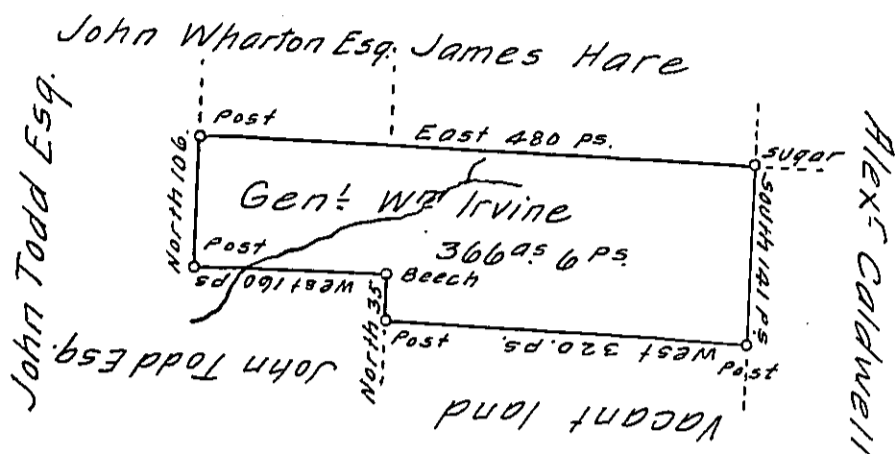 John Wharton Esq. James Hare
John Todd Esq.
Alexr Caldwell
Post
East 480 ps.
Sugar
North 106.
South 141 ps.
Genl Wm Irvine
366 as. 6 ps.
Post
West 160 ps
Beech
North 35
Post
West 320. ps.
Post
John Todd Esq.
Vacant land